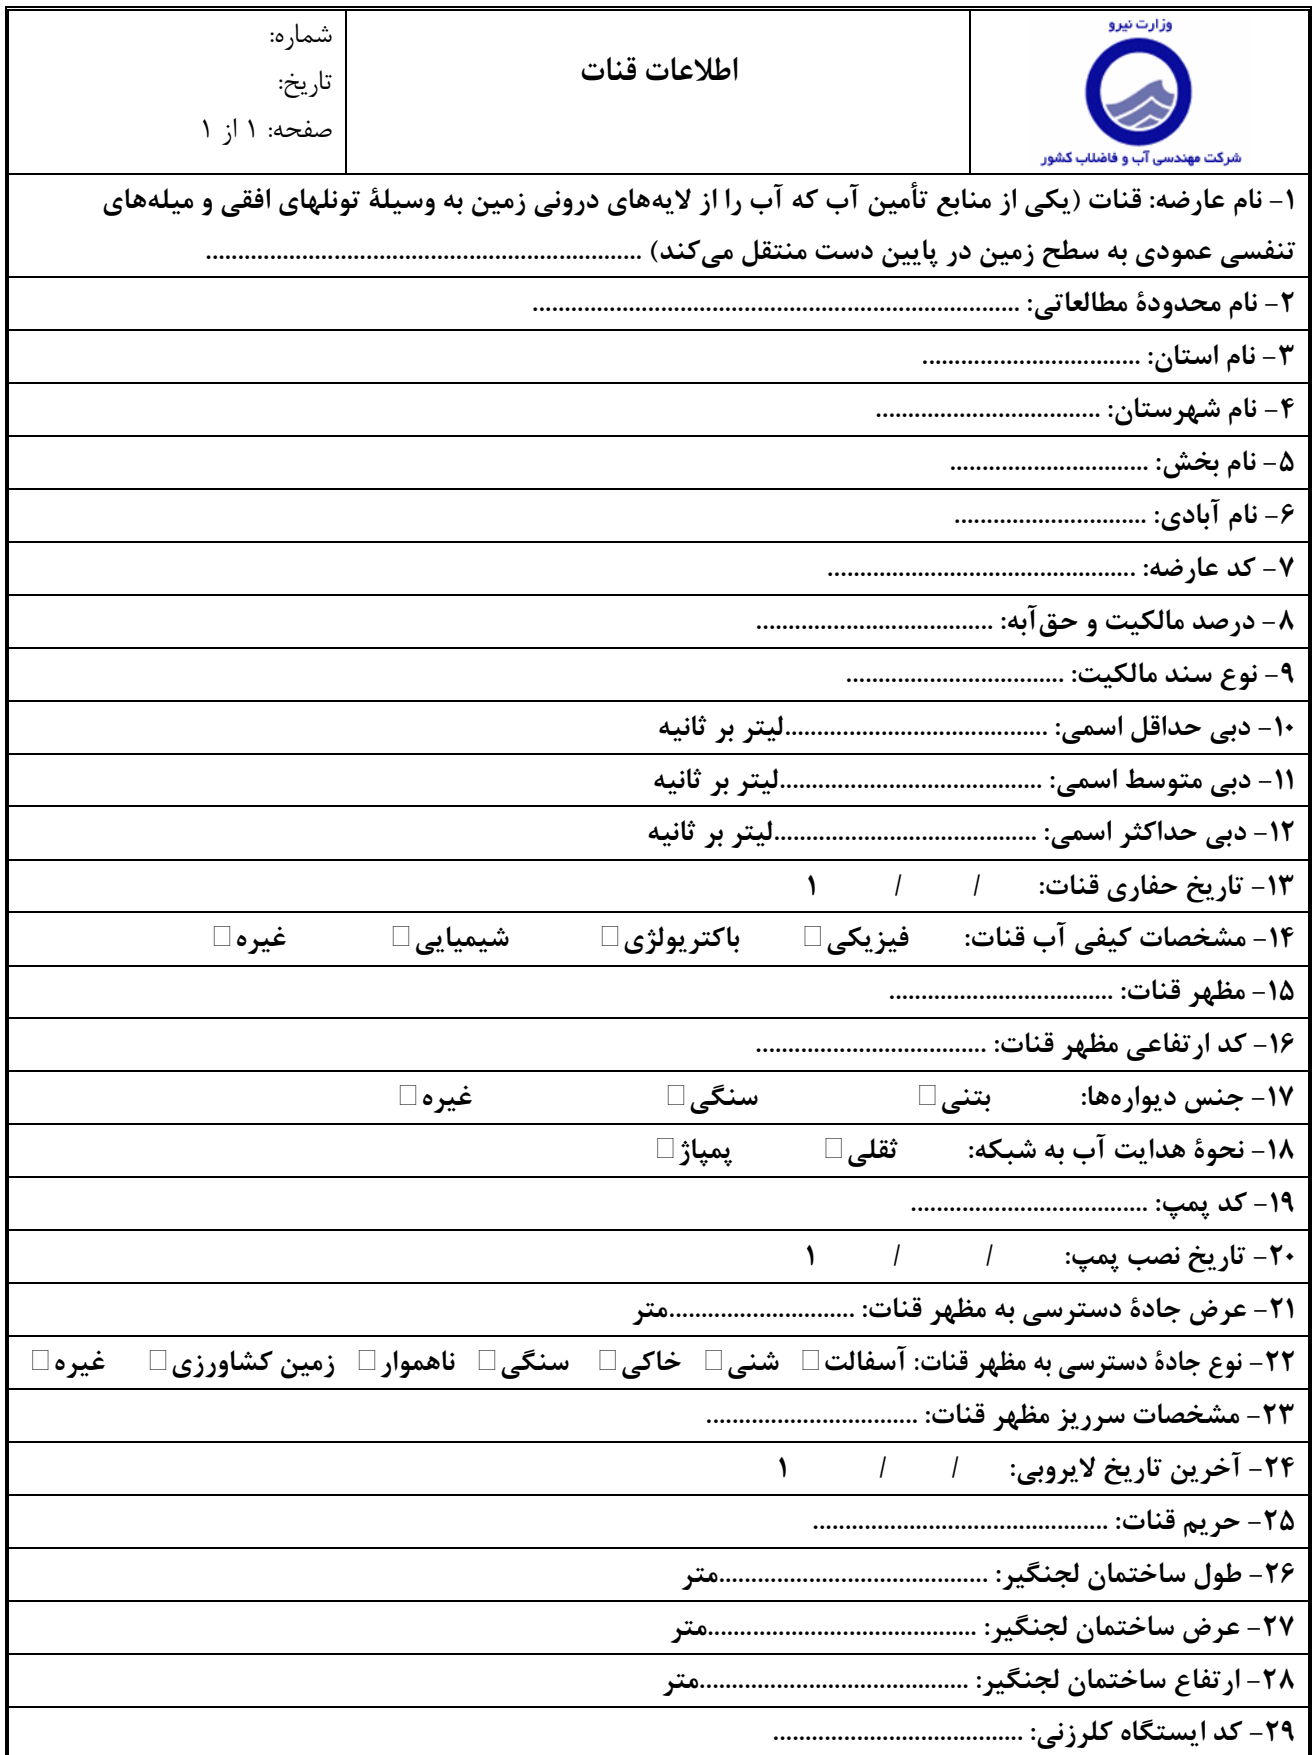 وزارت نیرو
شرکت مهندسی آب و فاضلاب کشور
اطلاعات قنات
شماره:
تاریخ:
صفحه: ۱ از ۱
۱- نام عارضه: قنات (یکی از منابع تأمین آب که آب را از لایه‌های درونی زمین به وسیلهٔ تونلهای افقی و میله‌های
تنفسی عمودی به سطح زمین در پایین دست منتقل می‌کند) ....................................................................
۲- نام محدودهٔ مطالعاتی: ............................................................................
۳- نام استان: ..................................
۴- نام شهرستان: ...................................
۵- نام بخش: ...............................
۶- نام آبادی: ..............................
۷- کد عارضه: ................................................
۸- درصد مالکیت و حق‌آبه: .....................................
۹- نوع سند مالکیت: ..................................
۱۰- دبی حداقل اسمی: .........................................لیتر بر ثانیه
۱۱- دبی متوسط اسمی: .........................................لیتر بر ثانیه
۱۲- دبی حداکثر اسمی: .........................................لیتر بر ثانیه
۱۳- تاریخ حفاری قنات: / / ۱
۱۴- مشخصات کیفی آب قنات: فیزیکی□ باکتریولژی□ شیمیایی□ غیره□
۱۵- مظهر قنات: ...................................
۱۶- کد ارتفاعی مظهر قنات: ....................................
۱۷- جنس دیواره‌ها: بتنی□ سنگی□ غیره□
۱۸- نحوهٔ هدایت آب به شبکه: ثقلی□ پمپاژ□
۱۹- کد پمپ: .....................................
۲۰- تاریخ نصب پمپ: / / ۱
۲۱- عرض جادهٔ دسترسی به مظهر قنات: .............................متر
۲۲- نوع جادهٔ دسترسی به مظهر قنات: آسفالت□ شنی□ خاکی□ سنگی□ ناهموار□ زمین کشاورزی□ غیره□
۲۳- مشخصات سرریز مظهر قنات: .................................
۲۴- آخرین تاریخ لایروبی: / / ۱
۲۵- حریم قنات: ..............................................
۲۶- طول ساختمان لجنگیر: ..........................................متر
۲۷- عرض ساختمان لجنگیر: ..........................................متر
۲۸- ارتفاع ساختمان لجنگیر: ..........................................متر
۲۹- کد ایستگاه کلرزنی: .......................................